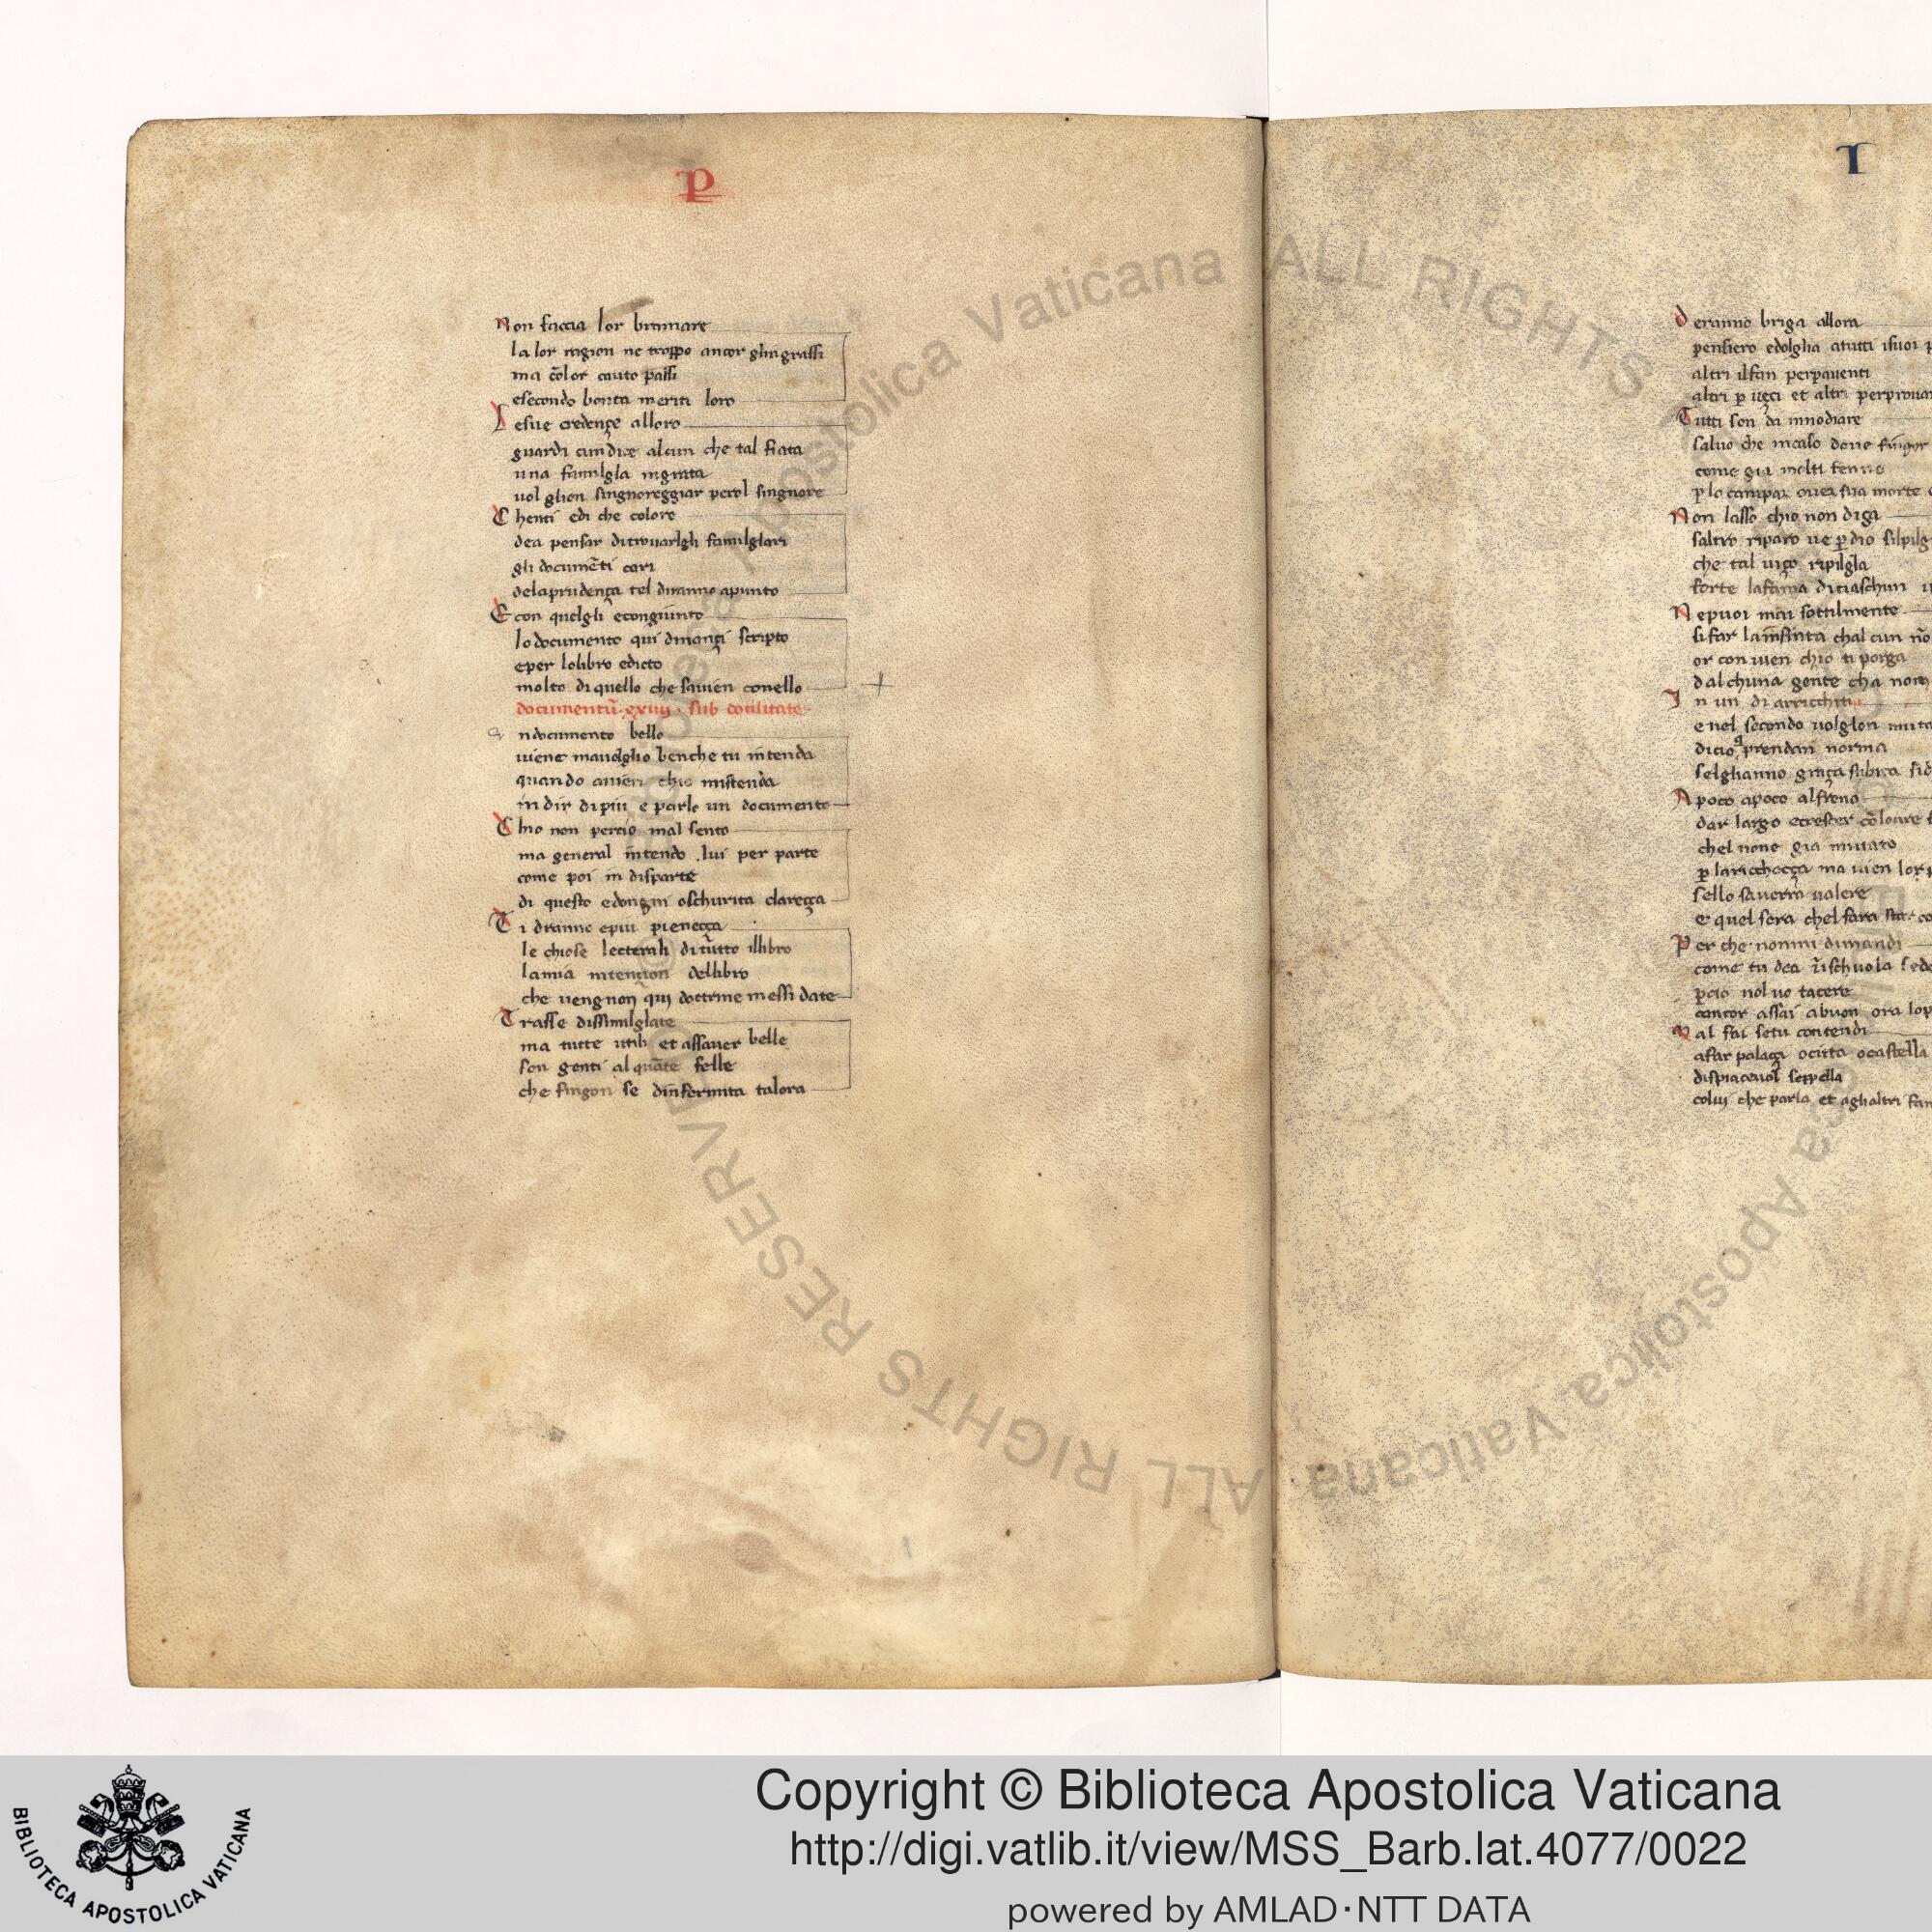 P
Non faccia lor bramare
la lor ragion ne troppo ancor glingrassi
ma cōlor cauto passi
esecondo bonta meriti loro
Lesue credençe alloro
guardi cun dice alcun che tal fiata
una famiglgla ingrata
uolglion singnoreggiar perol singnore
Chenti edi che colore
dea pensar ditrouarlgli famiglglari
gli documēti cari
delaprudença tel diranno apunto
E con quelgli econgiunto
lo documento qui dinançi scripto
eper lolibro edicto
molto di quello che sauien conello
documentū.xxiiij. sub docilitate
ndocumento bello
uiene mauelglio benche tu intenda
quando auien chio mistenda
in dir dipiu e parlo un documento
Chio non percio mal sento
ma general intendo lui per parte
come poi in disparte
di questo edongni oschurita clareçça
Ti dranno epiu pieneçça
le chiose lecterali di tutto illibro
lamia intention dellibro
che uengnon qui doctrine messi date
Trasse dissimilglate
ma tutte utili et assauer belle
son genti alquāte felle
che fingon se dinfermita talora
I
Deranno briga allora
pensiero edolglia atutti isuoi
altri ilfan perpauenti
altri p ueçi et altri perprouar
Tutti son da innodiare
saluo che incaso doue
come gia molti fenno
p lo campar ouer sua morte
Non lasso chio non diga
saltro riparo ue p dio
che tal uiço ripilgla
forte lafama diciaschun
Nepuoi mai sottilmente
si far lainfinta chal cun nō
or conuien chio ti porga
dalchuna gente cha nom
In un di arricchiti
e nel secondo uolglon
dicio prendan norma
selghanno
A poco apoco alfreno
dar largo
chel none gia mutato
p lariccheçça ma uien
sello sauerra ualere
e quel sera chel fara
Per che nonmi dimandi
come tu dea
pcio nol uo tacere
cancor assai abuon ora
Mal fai setu contendi
afar palaçi ocitta ocastella
dispiaceuol seppella
colui che parla et aglialtri
Copyright © Biblioteca Apostolica Vaticana
http://digi.vatlib.it/view/MSS_Barb.lat.4077/0022
powered by AMLAD·NTT DATA
BIBLIOTECA APOSTOLICA VATICANA